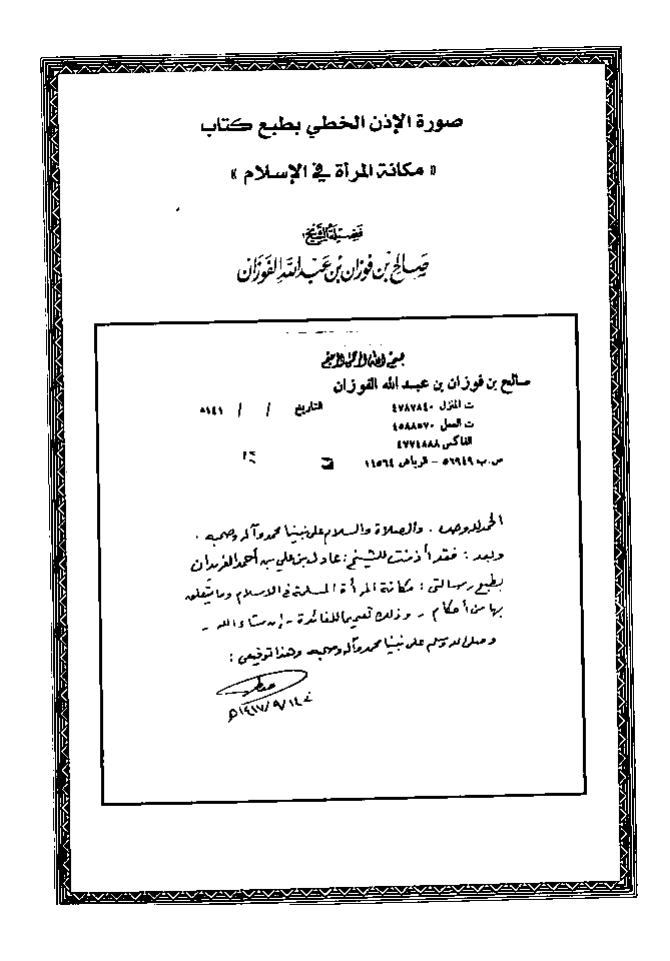 صورة الإذن الخطي بطبع كتاب
« مكانة المرأة في الإسلام »
فضيلة الشيخ
صالح بن فوزان بن عبد الله الفوزان
بسم الله الرحمن الرحيم
صالح بن فوزان بن عبد الله الفوزان
ت المنزل ٤٧٨٧٨٤٠ التاريخ / / ١٤١ه
ت العمل ٤٥٨٨٥٧٠
الفاكس ٤٧٧٤٨٨٨
ص.ب ٥٦٩٤٩ - الرياض ١١٥٦٤
الحمد لله وحده . والصلاة والسلام على نبينا محمد وآله وصحبه .
وبعد : فقد أذنت للشيخ : عادل بن علي بن أحمد الفريدان
بطبع رسالتي : مكانة المرأة المسلمة في الاسلام وما يتعلق
بها من أحكام - وذلك تعميما للفائدة - إن شاء الله -
وصلى الله وسلم على نبينا محمد وآله وصحبه وهذا توقيعي :
في ١٤١٧/٩/١٤ه